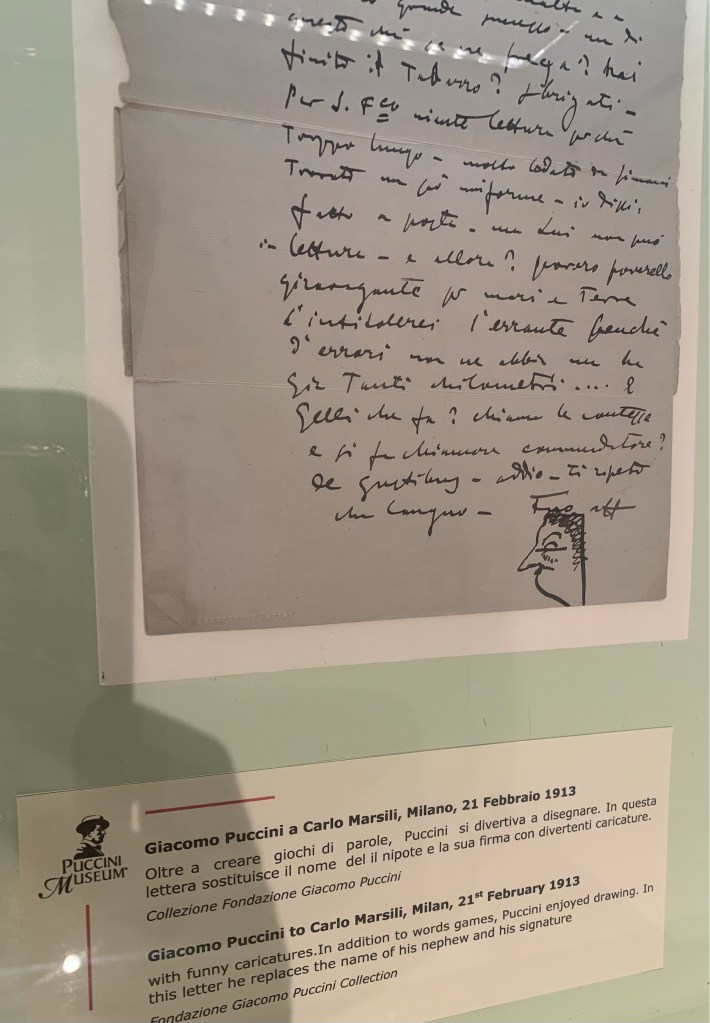 grande
questi che se ne frega? hai
finito il Tabarro? sbrigati –
Per S. Fco niente lettura perchè
Troppo lungo – molto lodato da
Trovato un pò uniforme – io dissi,
fatto a posta – ma Lui non può
in letture – e allora? povero poverello
girovagante per mari e Terre
L'intitolerei l'errante benchè
D'errori non ne abbia ma ha
già Tanti chilometri .... E
Gelli che fa? chiama la contessa
e si fa chiamare commendatore?
De gustibus – addio – ti ripeto
che langue – Tuo aff
PUCCINI
MUSEUM
Giacomo Puccini a Carlo Marsili, Milano, 21 Febbraio 1913
Oltre a creare giochi di parole, Puccini si divertiva a disegnare. In questa
lettera sostituisce il nome del il nipote e la sua firma con divertenti caricature.
Collezione Fondazione Giacomo Puccini
Giacomo Puccini to Carlo Marsili, Milan, 21st February 1913
with funny caricatures.In addition to words games, Puccini enjoyed drawing. In
this letter he replaces the name of his nephew and his signature
Fondazione Giacomo Puccini Collection